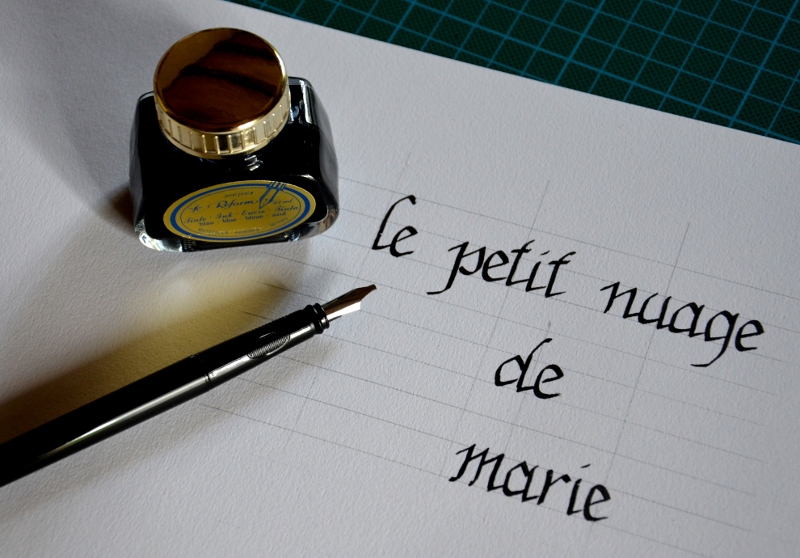 Reform
Tinte Ink Encre Tinta
le petit nuage
de
marie